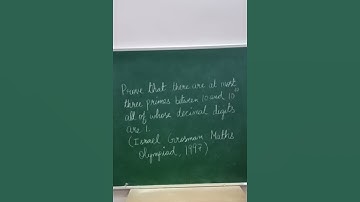 Prove that there are at most
three primes between 10 and 10¹⁰
all of whose decimal digits
are 1.
(Israel Grosman Maths
Olympiad,